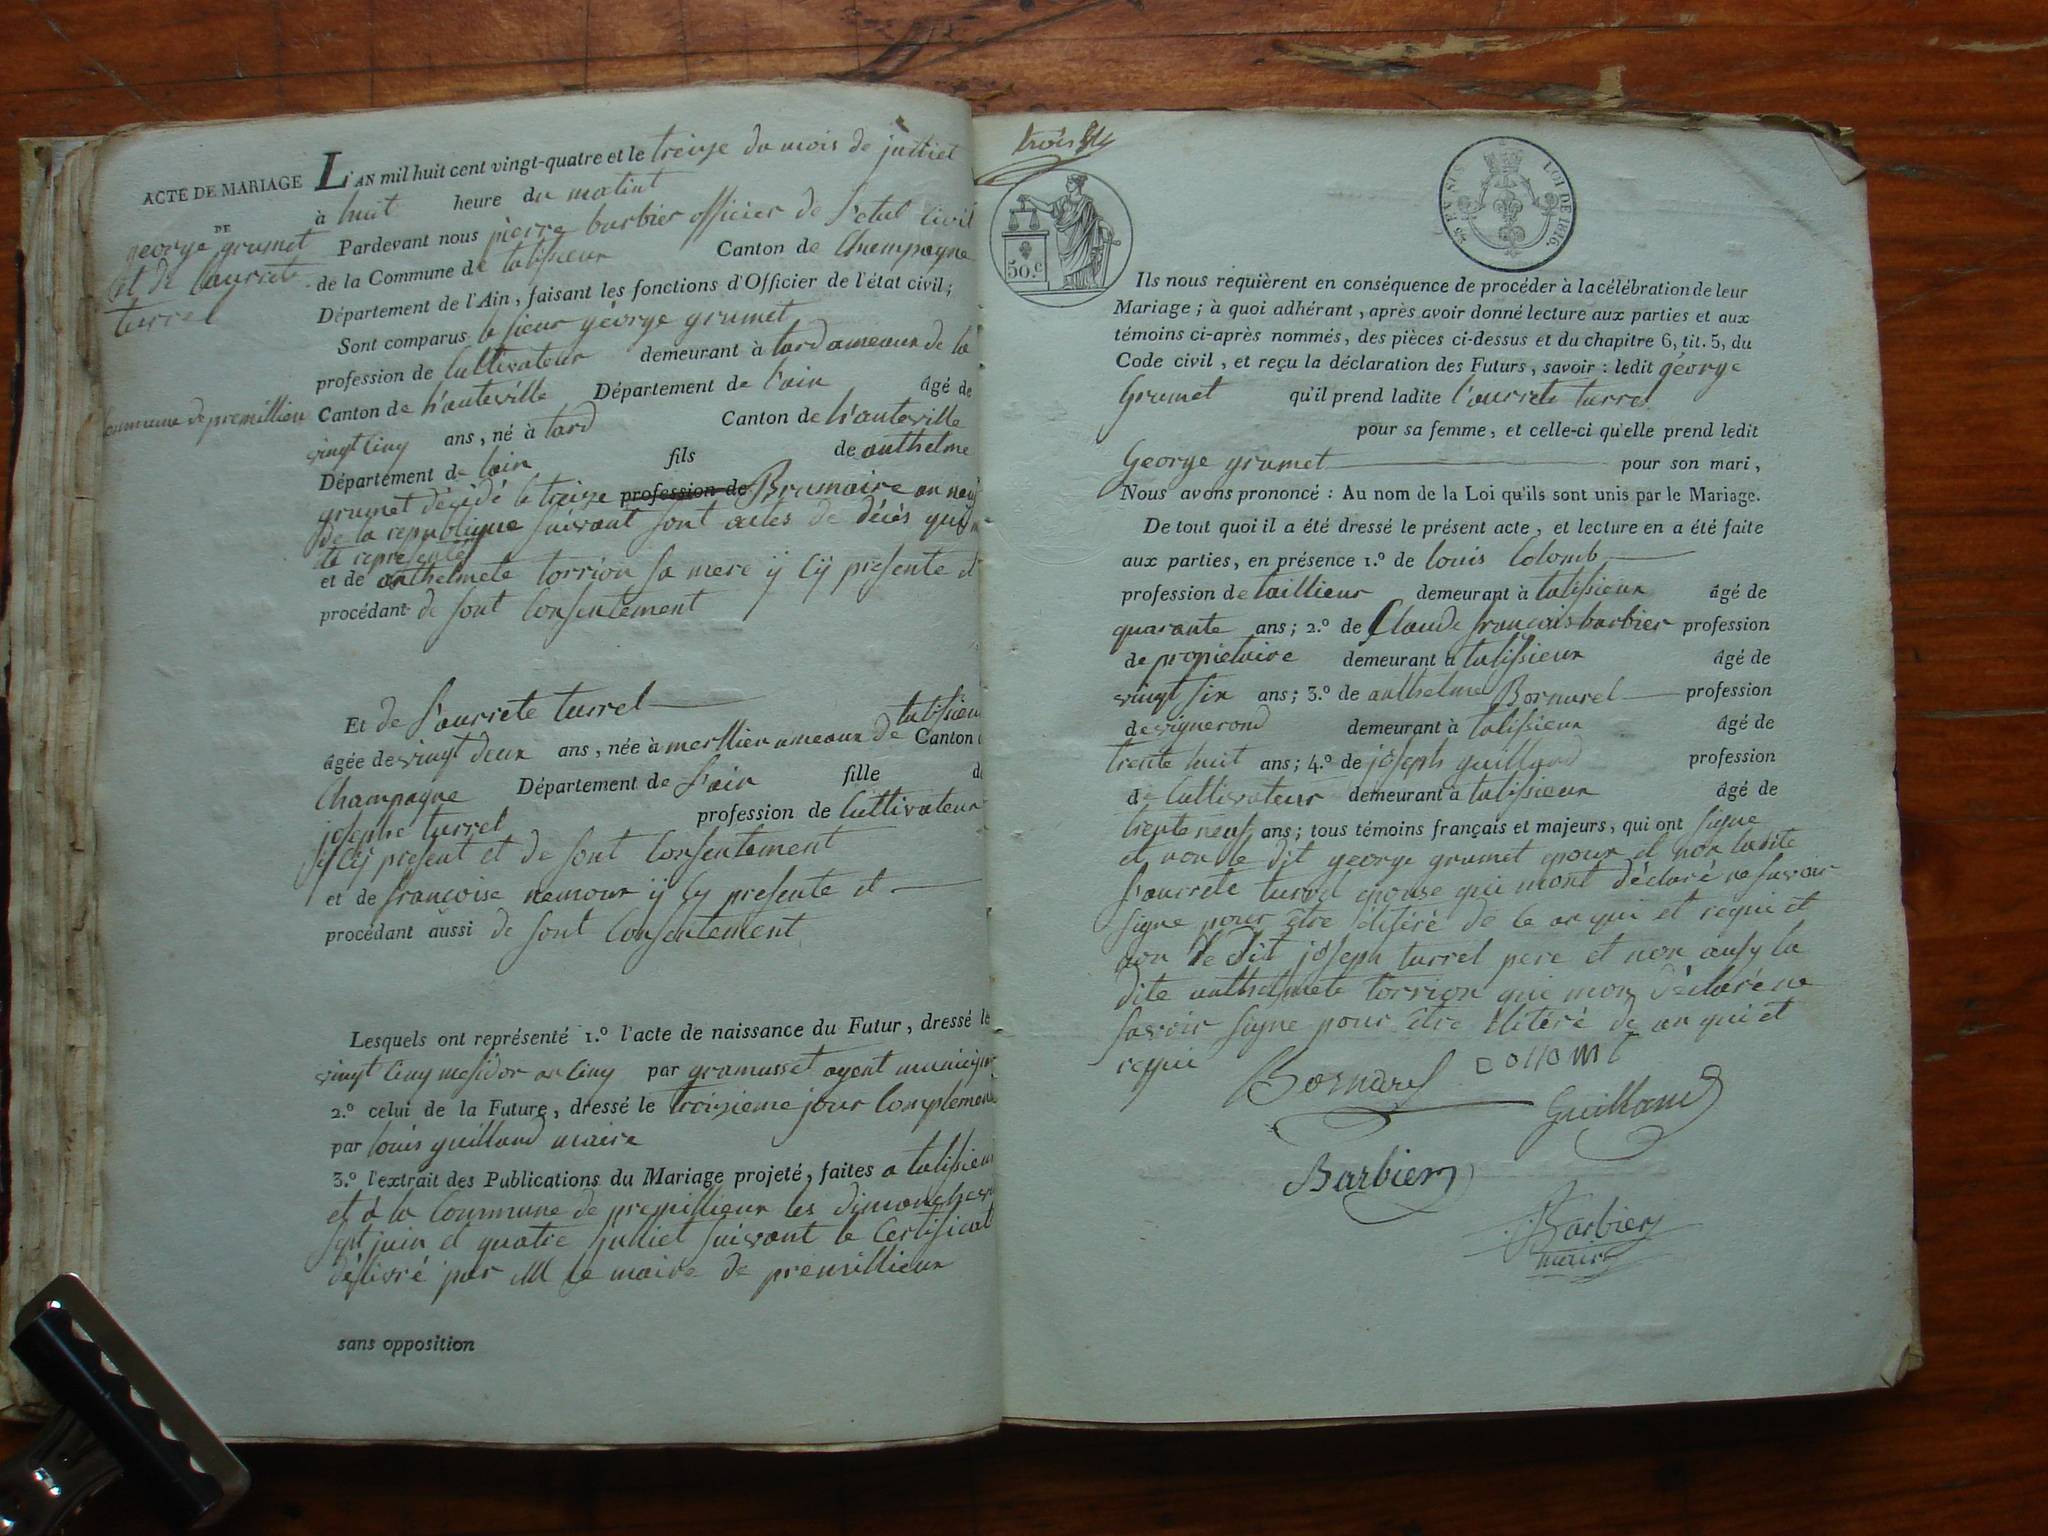 ACTE DE MARIAGE
DE
george grumet
et de l'aurrete
turrel
L'AN mil huit cent vingt-quatre et le treize du mois de julliet
à huit heure du matint
Pardevant nous pierre barbier officier de l'etat civil
de la Commune de talissieux Canton de Champagne
Département de l'Ain, faisant les fonctions d'Officier de l'état civil;
Sont comparus le sieur george grumet
profession de Cultivateur demeurant à tard ameaux de la
commune de premillieu
Canton de h'auteville Département de l'ain âgé de
vingt cinq ans, né à tard Canton de h'auteville
Département de l'ain fils de anthelme
grumet décidé le treize profession de Brumaire an neuf
de la republique suivant sont actes de décès qui
té representé
et de anthelmete torrion sa mere ÿ Cÿ presente et
procédant de sont Consentement
Et de l'aurrete turrel
âgée de vingt deux ans, née à merllier ameaux de talissieu Canton
Champagne Département de l'ain fille de
josephe turrel profession de Cultivateur
ÿ Cÿ present et de sont Consentement
et de francoise nemour ÿ Cy presente et
procédant aussi de sont Consentement
Lesquels ont représenté 1.º l'acte de naissance du Futur, dressé le
vingt Cinq mesidor an Cinq par gramusset agent municipal
2.º celui de la Future, dressé le troisieme jour Complement
par louis guilland maire
3.º l'extrait des Publications du Mariage projeté, faites a talissieu
et à la Commune de premillieux les dimanches
sept juin et quatre julliet suivant le Certificat
délivré par M le maire de premillieux
sans opposition
50.c
LOI DE 1816
Ils nous requièrent en conséquence de procéder à la célébration de leur
Mariage; à quoi adhérant, après avoir donné lecture aux parties et aux
témoins ci-après nommés, des pièces ci-dessus et du chapitre 6, tit. 5, du
Code civil, et reçu la déclaration des Futurs, savoir: ledit george
Grumet qu'il prend ladite l'aurrete turrel
pour sa femme, et celle-ci qu'elle prend ledit
George grumet pour son mari,
Nous avons prononcé: Au nom de la Loi qu'ils sont unis par le Mariage.
De tout quoi il a été dressé le présent acte, et lecture en a été faite
aux parties, en présence 1.º de louis Colomb
profession de taillieur demeurant à talissieux âgé de
quarante ans; 2.º de Claude francois barbier profession
de propietaire demeurant à talissieux âgé de
vingt six ans; 3.º de anthelme Bornarel profession
de vignerond demeurant à talissieux âgé de
trente huit ans; 4.º de joseph guilland profession
de Cultivateur demeurant à talissieux âgé de
trente neuf ans; tous témoins français et majeurs, qui ont signe
et non le dit george grumet epoux et non ladite
l'aurrete turrel epouse qui mont déclaré ne savoir
signe pour être de ce an qui et requi et
non le dit joseph turrel pere et non ausy la
dite anthelmete torrion qui mon déclaré ne
savoir signe pour être de an qui et
requi
Bornarel
Guilland
Barbier
Barbier
maire